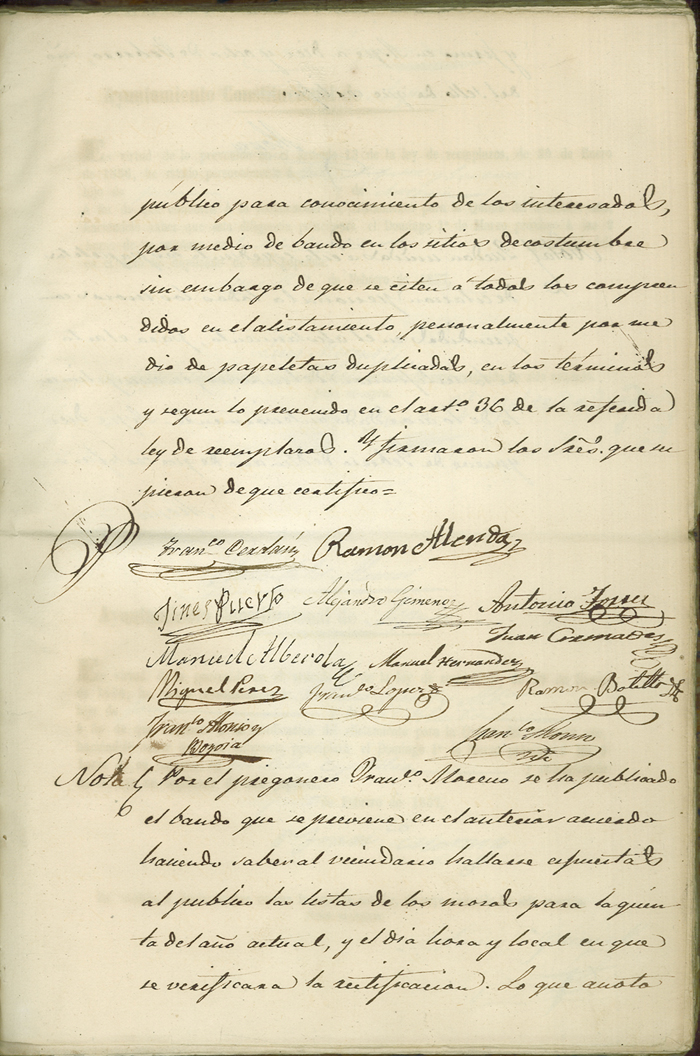 público para conocimiento de los interesados,
por medio de bando en los sitios de costumbre
sin embargo de que se citen á todos los compren
didos en el alistamiento, personalmente por me
dio de papeletas duplicadas, en los términos
y segun lo prevenido en el art.º 36 de la referida
ley de reemplazos. Y firmaron los Sres. que su
pieron de que certifico=
Fran.co Cerdán Ramon Alenda
Jines Puerto Alejandro Gimenez Antonio
Juan Cremades
Manuel Alberola Manuel Hernandez
Miguel Perez Fran.co Lopez Ramon Botella
Fran.co Alonso y
Nota Por el pregonero Fran.co Moreno se ha publicado
el bando que se previene en el anterior acuerdo
haciendo saber al vecindario hallarse espuestas
al publico las listas de los mozos para la quin
ta del año actual, y el dia hora y local en que
se verificara la rectificacion. Lo que anoto